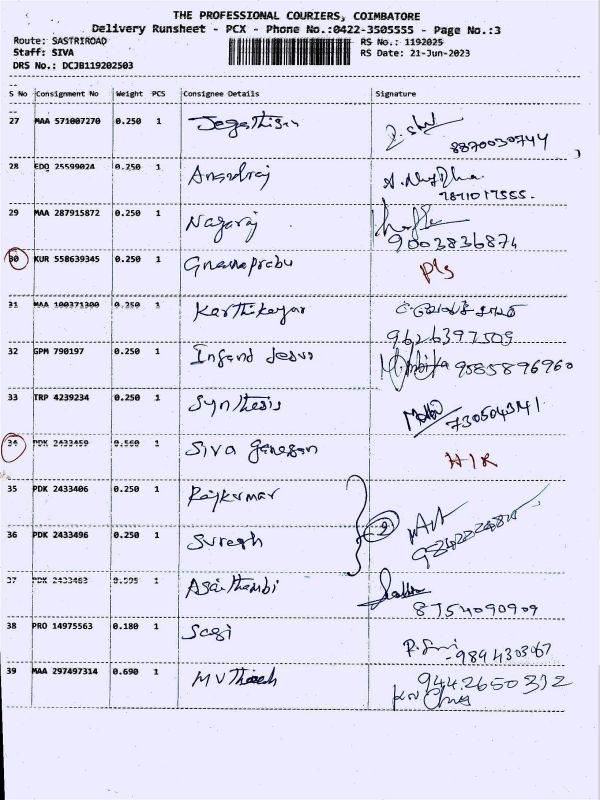 THE PROFESSIONAL COURIERS, COIMBATORE
Delivery Runsheet - PCX - Phone No.:0422-3505555 - Page No.:3
Route: SASTRIROAD RS No.: 1192025
Staff: SIVA RS Date: 21-Jun-2023
DRS No.: DCJB119202503
S No Consignment No Weight PCS Consignee Details Signature
27 MAA 571007270 0.250 1 Jegathisan
8870030744
28 EDQ 25599024 0.250 1 Anandraj
7871017555.
29 MAA 287915872 0.250 1 Nagaraj
9003836874
30 KUR 558639345 0.250 1 Gnanaprabu
31 MAA 100371300 0.250 1 Karthikeyan
9626397509
32 GPM 790197 0.250 1 Infand Jesus 9585896960
33 TRP 4239234 0.250 1 Synthesis
34 PDK 2433459 0.560 1 Siva Ganesan
35 PDK 2433406 0.250 1 Rajkumar
36 PDK 2433496 0.250 1 Suresh
37 PDK 2433463 0.595 1 Asaithambi
8754090909
38 PRO 14975563 0.180 1 Sagi
39 MAA 297497314 0.690 1
9442650332